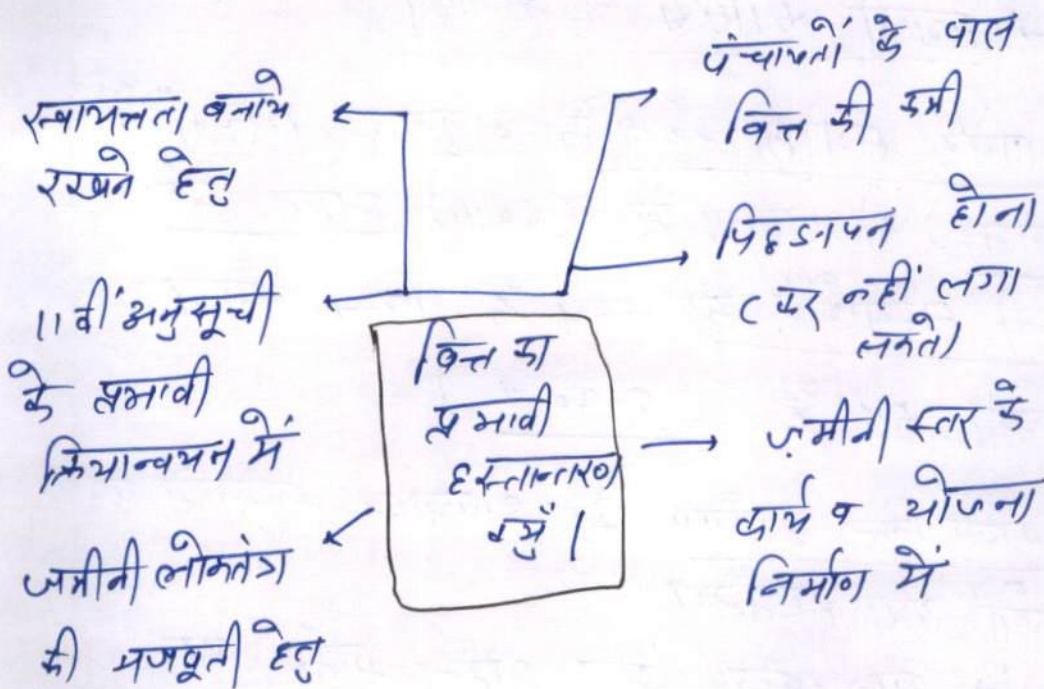 स्वायत्तता बनाये
रखने हेतु
11 वीं अनुसूची
के प्रभावी
क्रियान्वयन में
जमीनी लोकतंत्र
की मजबूती हेतु
वित्त का
प्रभावी
हस्तान्तरण
क्यूँ।
पंचायतों के पास
वित्त की कमी
पिछडापन होना
(कर नहीं लगा
सकते)
ज़मीनी स्तर के
कार्य व योजना
निर्माण में